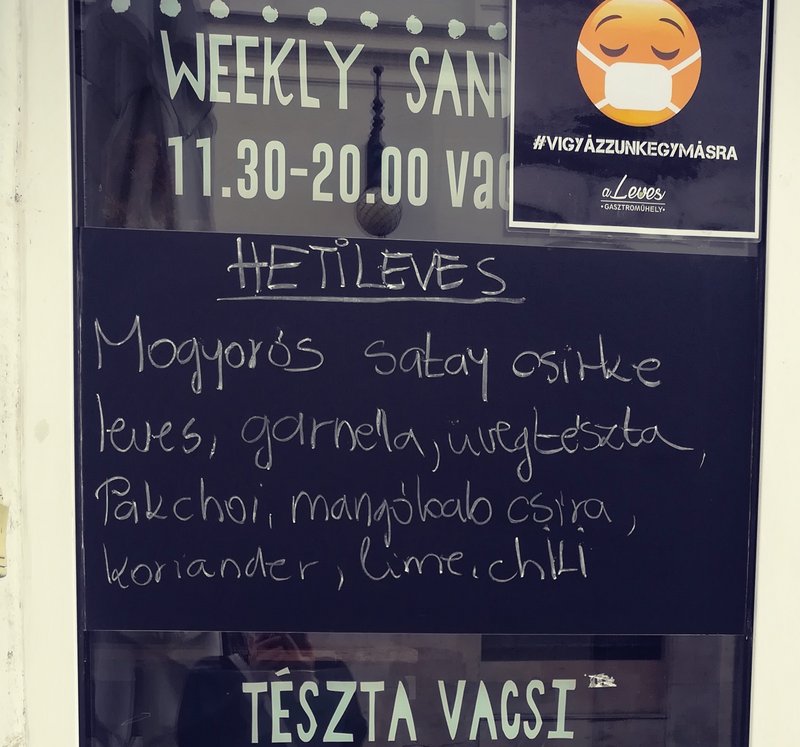 WEEKLY SAND
11.30-20.00 vac
#VIGYÁZZUNKEGYMÁSRA
a Leves
•GASZTROMŰHELY•
HETI LEVES
Mogyorós satay csirke
leves, garnela, üvegtészta,
Pakchoi, mangóbab csíra,
koriander, lime, chili
TÉSZTA VACSI